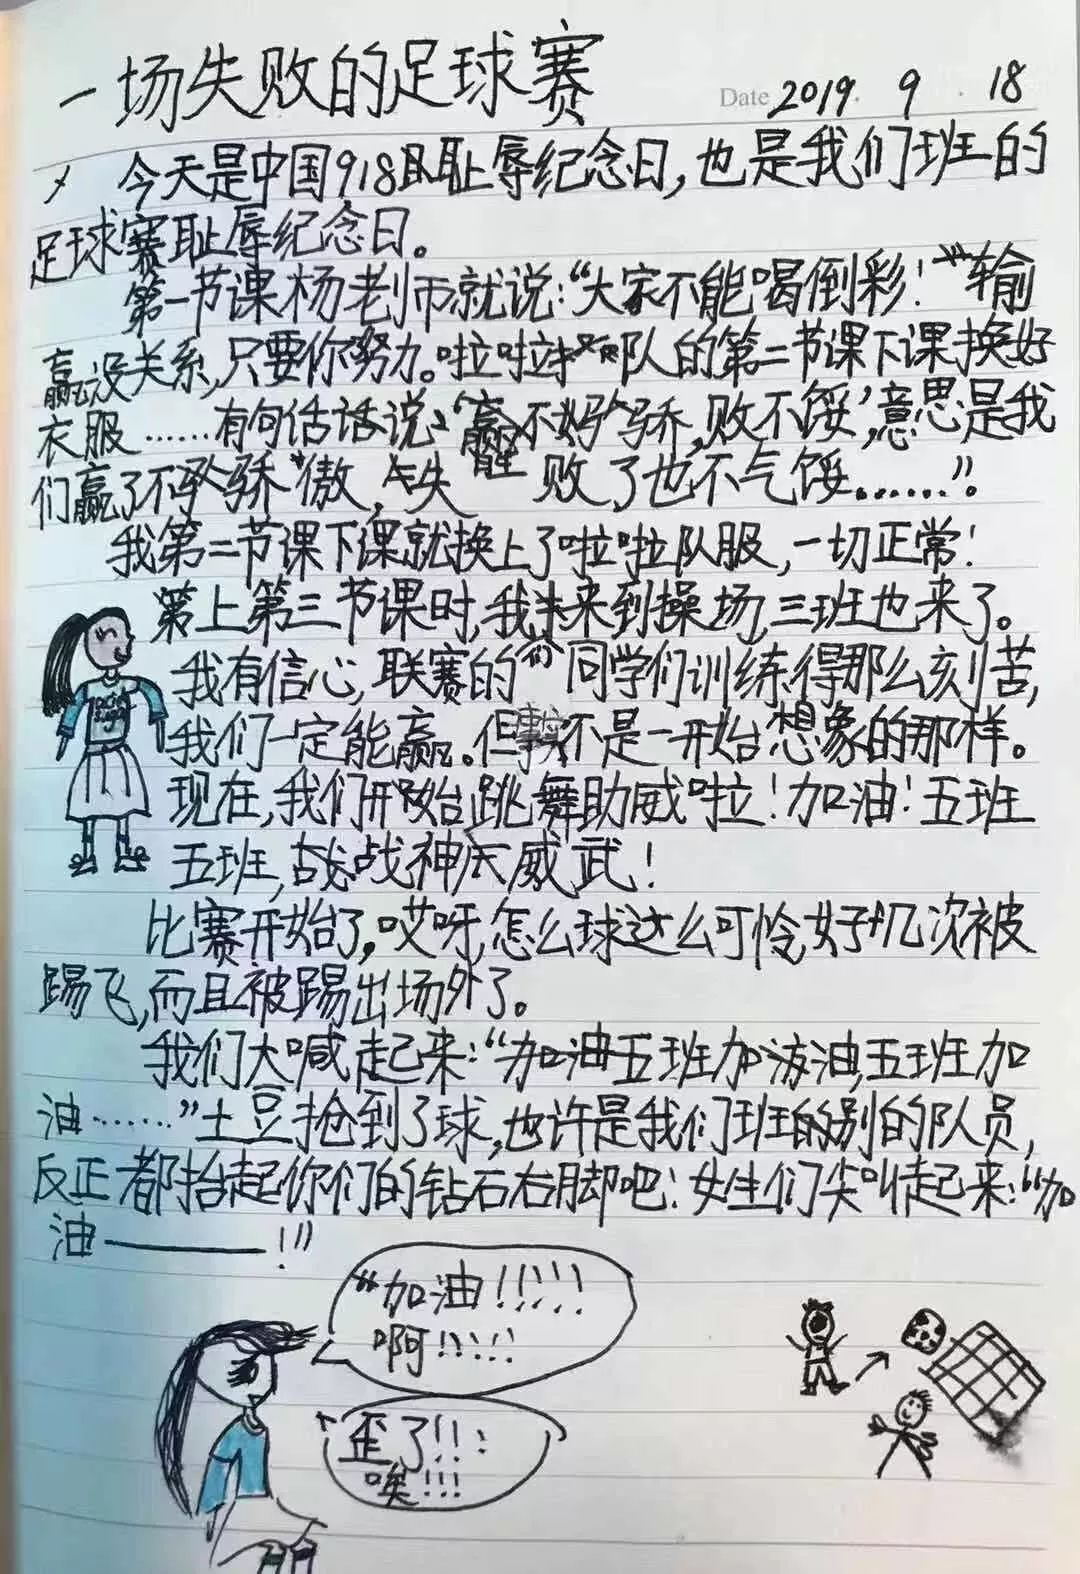 一场失败的足球赛
Date 2019. 9 . 18
今天是中国918耻辱纪念日,也是我们班的
足球赛耻辱纪念日。
第一节课杨老师就说:“大家不能喝倒彩!输
赢没关系,只要你努力。啦啦队的第二节课下课换好
衣服……有句话话说:‘赢不骄,败不馁’,意思是我
们赢了不骄傲,失败了也不气馁……”。
我第二节课下课就换上了啦啦队服,一切正常!
上第三节课时,我来到操场,三班也来了。
我有信心,联赛的同学们训练得那么刻苦,
我们一定能赢。但事实不是一开始想象的那样。
现在,我们开始跳舞助威啦!加油!五班
五班,战神威武!
比赛开始了,哎呀,怎么球这么可怜,好几次被
踢飞,而且被踢出场外了。
我们大喊起来:“加油五班加油,五班加
油……”土豆抢到了球,也许是我们班的别的队员,
反正都抬起你们的钻石右脚吧!女生们尖叫起来:“加
油——!”
“加油!!!!!
啊!!!!!
歪了!!!
唉!!!